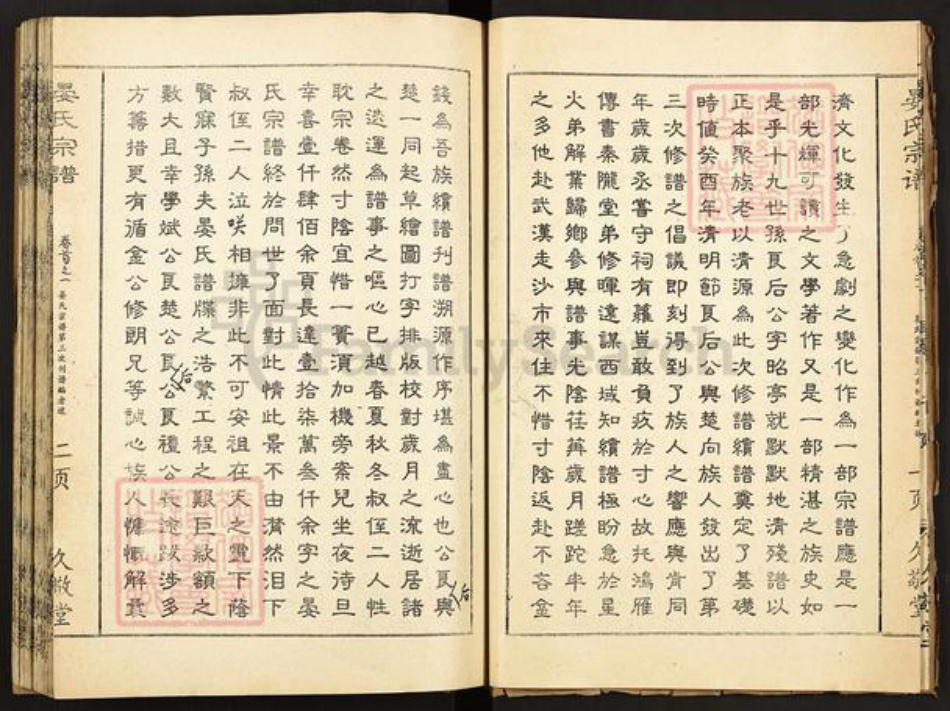 晏氏宗谱
濟文化發生了急劇之變化作為一部宗譜應是一
部光輝可讀之文學著作又是一部精湛之族史如
是乎十九世孫良后公字昭亭就默默地清殘譜以
正本聚族老以清源為此次修譜續譜奠定了基礎
時值癸酉年清明節良后公與楚向族人發出了第
三次修譜之倡議即刻得到了族人之響應與肯同
年歲歲丞嘗守祠有蘿豈敢負疚於寸心故托鴻雁
傳書秦隴堂弟修暉遠謀西域知續譜極盼急於星
火弟解業歸鄉參與譜事光陰荏苒歲月蹉跎半年
之多他赴武漢走沙市來往不惜寸陰返赴不吝金
錢為吾族續譜刊譜溯源作序堪為盡心也公良與
楚一同起草繪圖打字排版校對歲月之流逝居諸
之迭運為譜事之嘔心已越春夏秋冬叔侄二人性
耽宗卷然寸陰宜惜一賓須加機旁案兒坐夜待旦
幸喜壹仟肆佰余頁長達壹拾柒萬叁仟余字之晏
氏宗譜終於問世了面對此情此景不由潸然泪下
叔侄二人泣咲相擁非此不可安祖在天之靈下蔭
賢寐子孫夫晏氏譜牒之浩繁工程之艱巨欵額之
數大且幸學斌公良楚公良公良禮公長途跋涉多
方籌措更有循金公修朗兄等誠心族人慷慨解囊
后
后
晏氏宗譜
卷首之一
晏氏宗譜第三次刊譜編者說
二页
久敬堂
FamilySearch